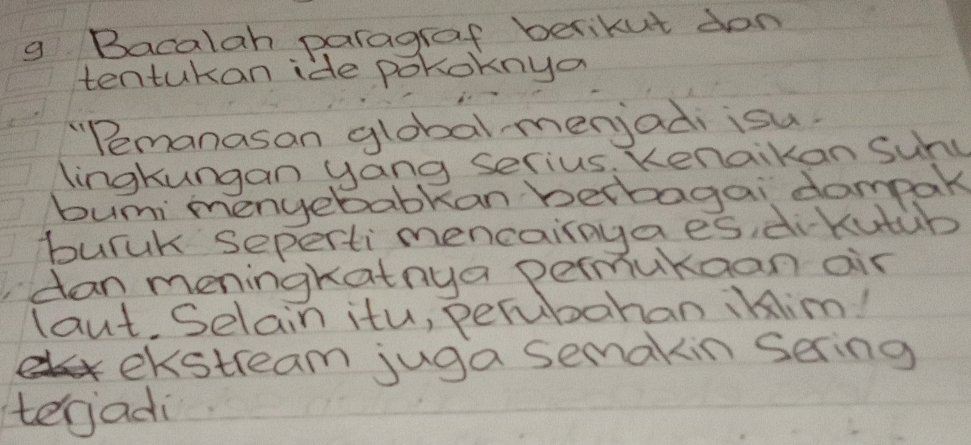 9 Bacalah paragraf berikut dan
tentukan ide pokoknya
"Pemanasan global menjadi isu
lingkungan yang serius. Kenaikan suhu
bumi menyebabkan berbagai dampak
buruk seperti mencairnya es di kutub
dan meningkatnya permukaan air
laut. Selain itu, perubahan iklim
ekstream juga semakin sering
terjadi